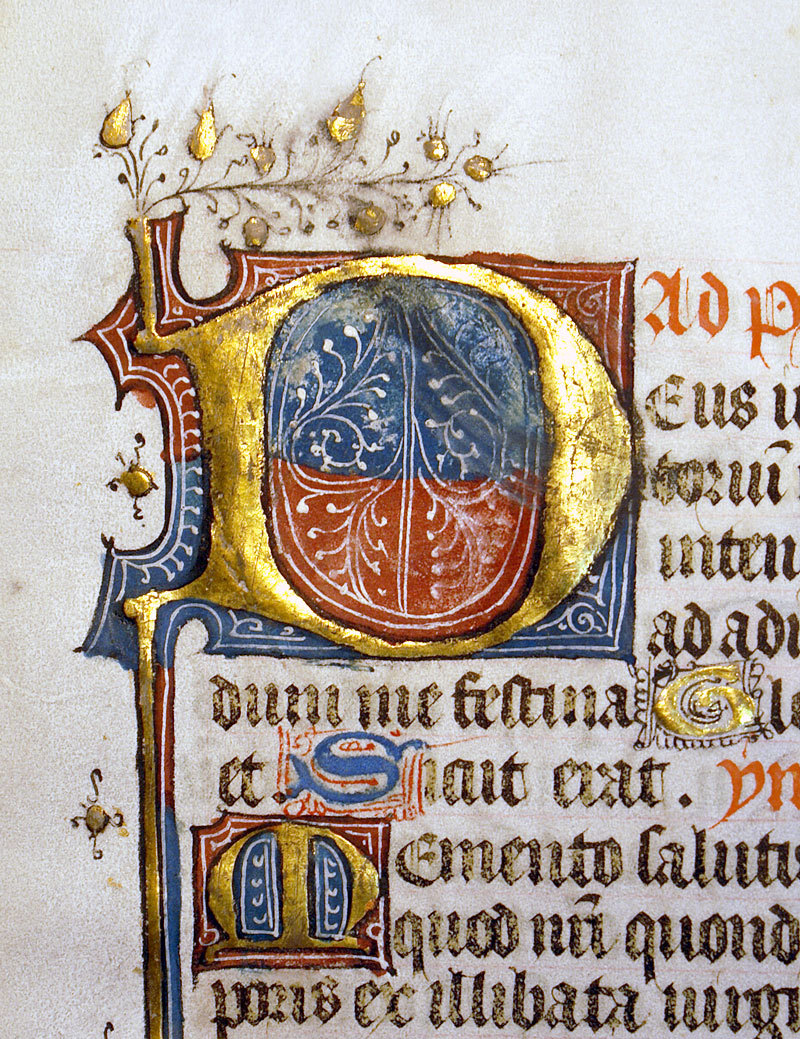 Ad p
DEus iu
toriū
inten
ad adi
dum me festina Glo
et. Sicut erat. ym
MEmento salutis
quod nr̄i quond
poris ex illibata uirgi